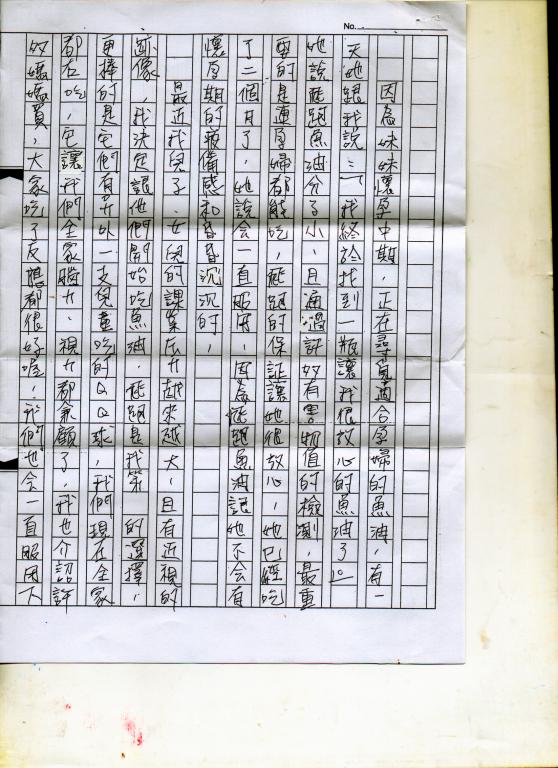 No.
因為妹妹懷孕中期，正在尋覓適合孕婦的魚油，有一
天她跟我說：「我終於找到一瓶讓我很放心的魚油了」。
她說 魚油分子小，且通過許多有害物值的檢測，最重
要的是連孕婦都能吃， 的保証讓她很放心，她已經吃
了二個月了，她說會一直服用，因為 魚油讓她不會有
懷孕期的疲備感和昏昏沉沉的，
最近我兒子、女兒的課業壓力越來越大，且有近視的
跡像，我決定讓他們開始吃魚油， 是我第 的選擇，
更棒的是它們有另外一支兒童吃的QQ球，我們現在全家
都在吃，它讓我們全家腦力、視力都兼顧了，我也介詔許
多媽媽買，大家吃了反應都很好喔，我們也會一直服用下